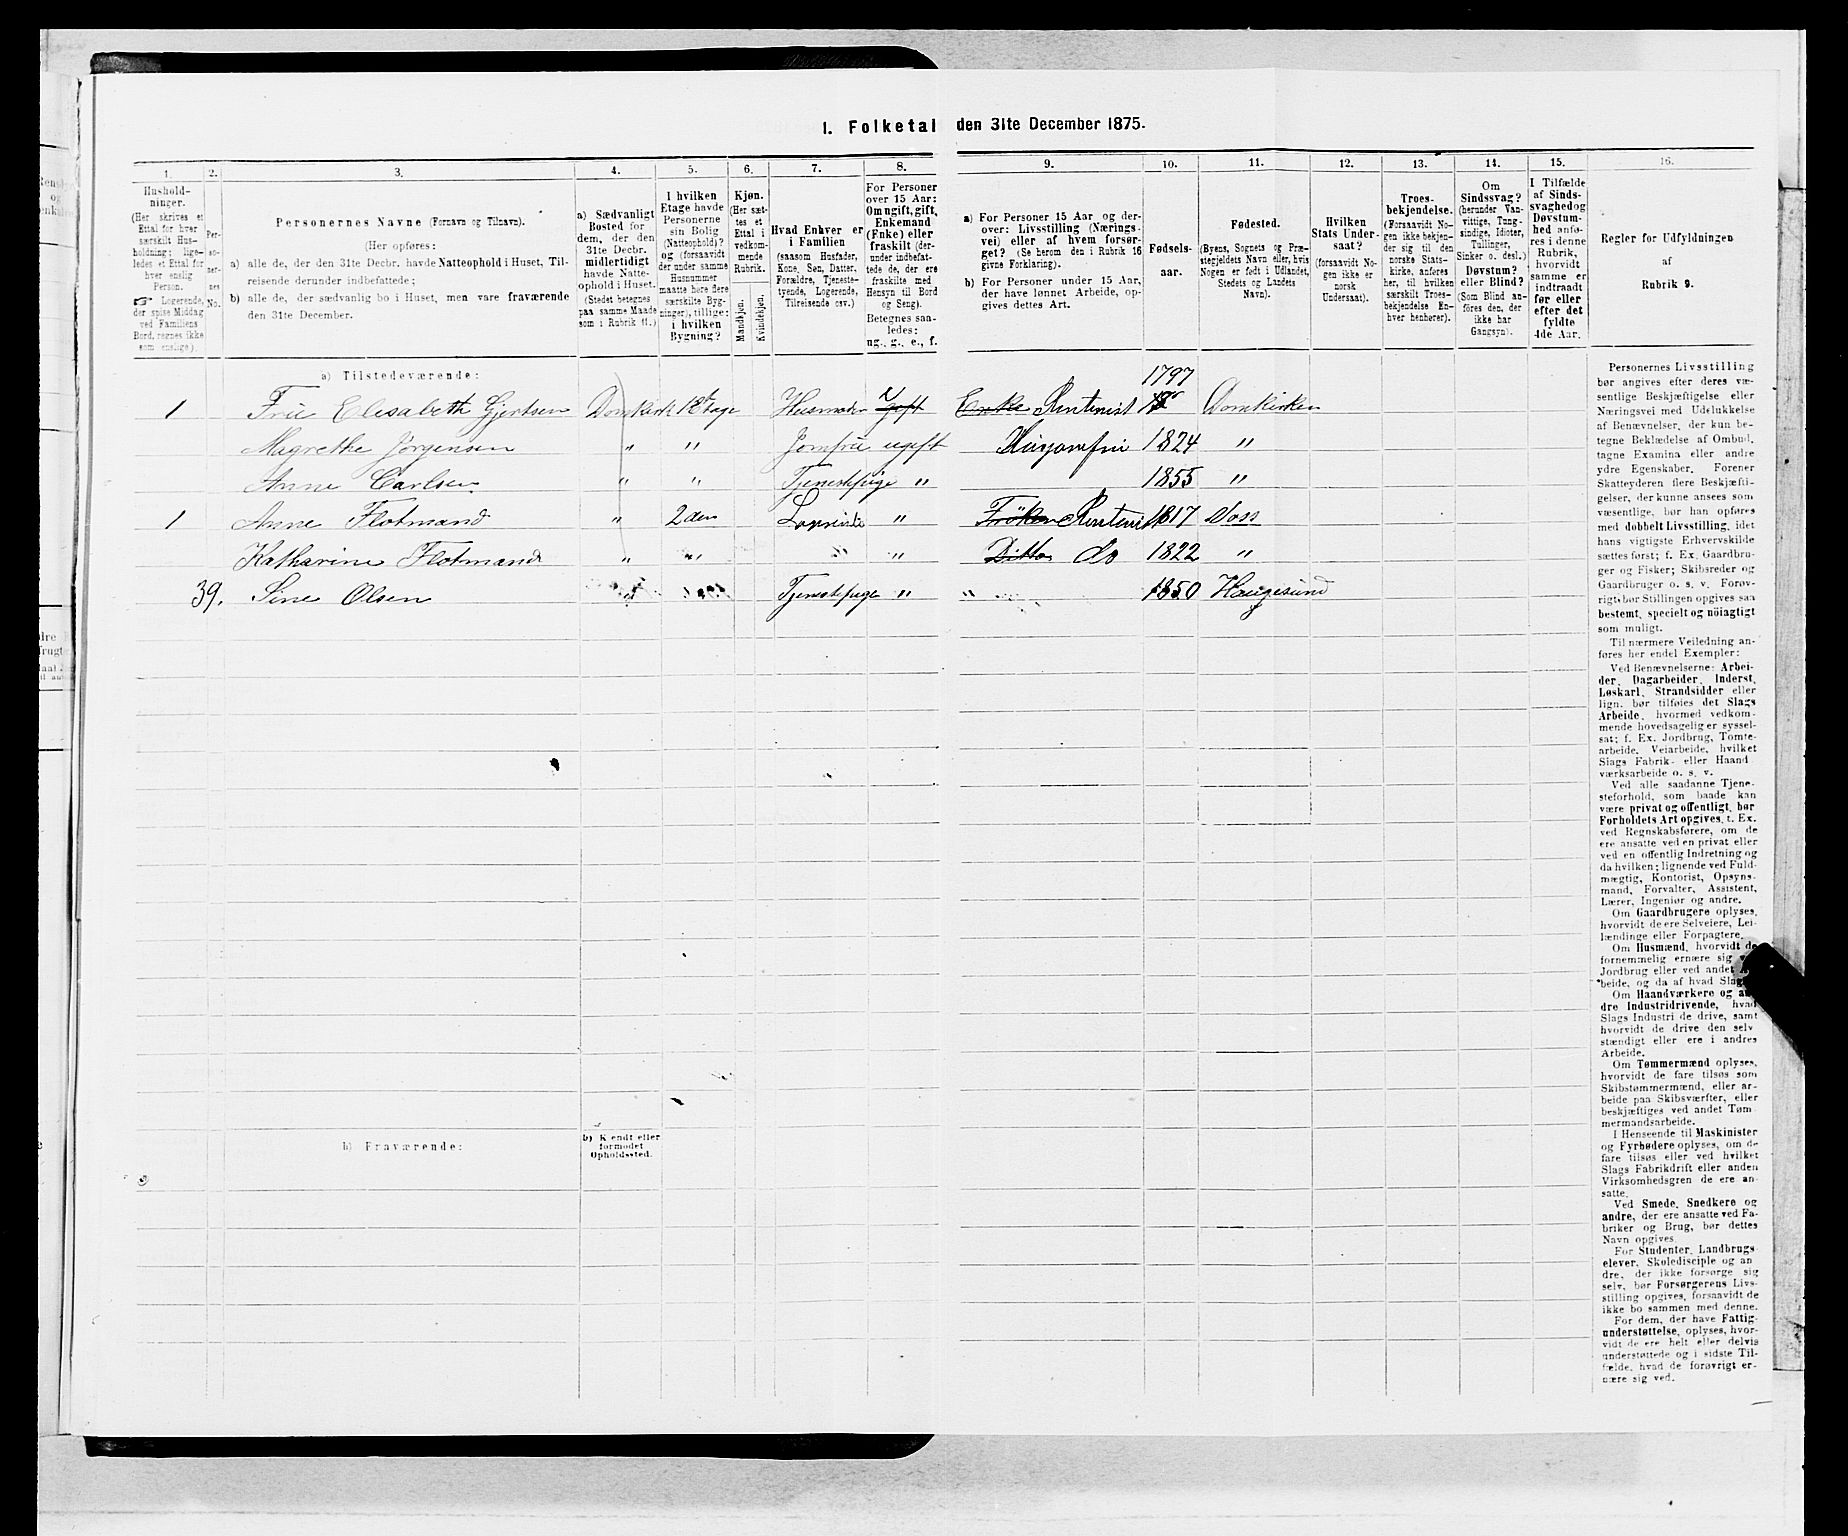 1. Folketal den 31te December 1875.
1. 2. 3. 4. 5. 6. 7. 8. 9. 10. 11. 12. 13. 14. 15. 16.
Hushold-
ninger.
(Her skrives et
Ettal for hver
særskilt Hus-
holdning; lige-
ledes et Ettal for
hver enslig
Person.
☞ Logerende,
der spise Middag
ved Familiens
Bord, regnes ikke
som enslige).
Per-
so-
ner-
nes
No.
Personernes Navne (Fornavn og Tilnavn).
(Her opføres:
a) alle de, der den 31te Decbr. havde Natteophold i Huset, Til-
reisende derunder indbefattede;
b) alle de, der sædvanlig bo i Huset, men vare fraværende
den 31te December.
a) Sædvanligt
Bosted for
dem, der den
31te Decbr.
midlertidigt
havde Natte-
ophold i Huset.
(Stedet betegnes
paa samme Maade
som i Rubrik 11.)
I hvilken
Etage havde
Personerne
sin Bolig
(Natteophold)?
og (forsaavidt
der under samme
Husnummer
maatte høre flere
særskilte Byg-
ninger), tillige:
i hvilken
Bygning?
Kjøn.
(Her sæt-
tes et
Ettal i
vedkom-
mende
Rubrik.
Mandkjøn.
Kvindekjøn.
Hvad Enhver er
i Familien
(saasom Husfader,
Kone, Søn, Datter,
Forældre, Tjeneste-
tyende, Logerende,
Tilreisende osv.)
For Personer
over 15 Aar:
Om ugift, gift,
Enkemand
(Enke) eller
fraskilt (der-
under indbefat-
tede de, der ere
fraskilte med
Hensyn til Bord
og Seng).
Betegnes saa-
ledes:
ug., g., e., f.
a) For Personer 15 Aar og der-
over: Livsstilling (Nærings-
vei) eller af hvem forsør-
get? (Se herom den i Rubrik 16
givne Forklaring).
b) For Personer under 15 Aar,
der have lønnet Arbeide, op-
gives dettes Art.
Fødsels-
aar.
Fødested.
(Byens, Sognets og Præ-
stegjeldets Navn eller, hvis
Nogen er født i Udlandet,
Stedets og Landets
Navn).
Hvilken
Stats Under-
saat?
(forsaavidt No-
gen ikke er
norsk
Undersaat).
Troes-
bekjendelse.
(Forsaavidt No-
gen ikke bekjen-
der sig til den
norske Stats-
kirke, anføres
her, til hvilken
særskilt Troes-
bekjendelse En-
hver henhører).
Om
Sindssvag?
(herunder Van-
vittige, Tung-
sindige, Idioter,
Tullinger,
Sinker o. desl.)
Døvstum?
eller Blind?
(Som Blind an-
føres den, der
ikke har
Gangsyn).
I Tilfælde
af Sinds-
svaghed og
Døvstum-
hed anfø-
res i denne
Rubrik,
hvorvidt
samme er
indtraadt
før eller
efter det
fyldte
4de Aar.
Regler for Udfyldningen
af
Rubrik 9.
a) Tilstedeværende:
1797
1 Frue Elisabeth Gjertsen Domkirk 1ste Etage Husmoder Gift Enke Rentenist 18 Domkirken
Magrethe Jørgensen " " Jomfru ugift Husjomfru 1824 "
Anne Carlsen " " Tjenestepige " 1855 "
1 Anne Flotmand " 2den Logerinde " Frøken Rentenist 1817 Voss
Katharine Flotmand " " " " Ditto do 1822 "
39. Sine Olsen " " Tjenestepige " " 1850 Haugesund
b) Fraværende:
b) Kjendt eller
formodet
Opholdssted.
Personernes Livsstilling
bør angives efter deres væ-
sentlige Beskjæftigelse eller
Næringsvei med Udelukkelse
af Benævnelser, der kun be-
tegne Beklædelse af Ombud,
tagne Examina eller andre
ydre Egenskaber. Forener
Skatteyderen flere Beskjæfti-
gelser, der kunne ansees som
væsentlige, bør han opføres
med dobbelt Livsstilling, idet
hans vigtigste Erhvervskilde
sættes først; f. Ex. Gaardbru-
ger og Fisker; Skibsreder og
Gaardbruger o. s. v. Forøv-
rigt bør Stillingen opgives saa
bestemt, specielt og nöiagtigt
som muligt.
Til nærmere Veiledning an-
føres her endel Exempler:
Ved Benævnelserne: Arbei-
der, Dagarbeider, Inderst,
Løskarl, Strandsidder eller
lign. bør tilføies det Slags
Arbeide, hvormed vedkom-
mende hovedsagelig er syssel-
sat; f. Ex. Jordbrug, Tomte-
arbeide, Veiarbeide, hvilket
Slags Fabrik- eller Haand
værksarbeide o. s. v.
Ved alle saadanne Tjene-
steforhold, som baade kan
være privat og offentligt, bør
Forholdets Art opgives, t. Ex.
ved Regnskabsførere, om de
ere ansatte ved en privat eller
ved en offentlig Indretning og
da hvilken; lignende ved Fuld-
mægtig, Kontorist, Opsyns-
mand, Forvalter, Assistent,
Lærer, Ingeniør og andre.
Om Gaardbrugere oplyses,
hvorvidt de ere Selveiere, Lei-
lændinge eller Forpagtere.
Om Husmænd, hvorvidt de
fornemmelig ernære sig
Jordbrug eller ved andet
beide, og da af hvad
Om Haandværkere og an-
dre Industridrivende, hvad
Slags Industri de drive, samt
hvorvidt de drive den selv
stændigt eller ere i andres
Arbeide.
Om Tømmermænd oplyses,
hvorvidt de fare tilsøs som
Skibstømmermænd, eller ar-
beide paa Skibsværfter, eller
beskjæftiges ved andet Tøm
mermandsarbeide.
I Henseende til Maskinister
og Fyrbødere oplyses, om de
fare tilsøs eller ved hvilket
Slags Fabrikdrift eller anden
Virksomhedsgren de ere an-
satte.
Ved Smede, Snedkere og
andre, der ere ansatte ved Fa-
briker og Brug, bør dettes
Navn opgives.
For Studenter, Landbrugs
elever, Skoledisciple og an
dre, der ikke forsørge sig
selv, bør Forsørgerens Livs-
stilling opgives, forsaavidt de
ikke bo sammen med denne.
For dem, der have Fattig-
understøttelse, oplyses, hvor-
vidt de ere helt eller delvis
understøttede og i sidste Til-
fælde, hvad de forøvrigt er-
nære sig ved.